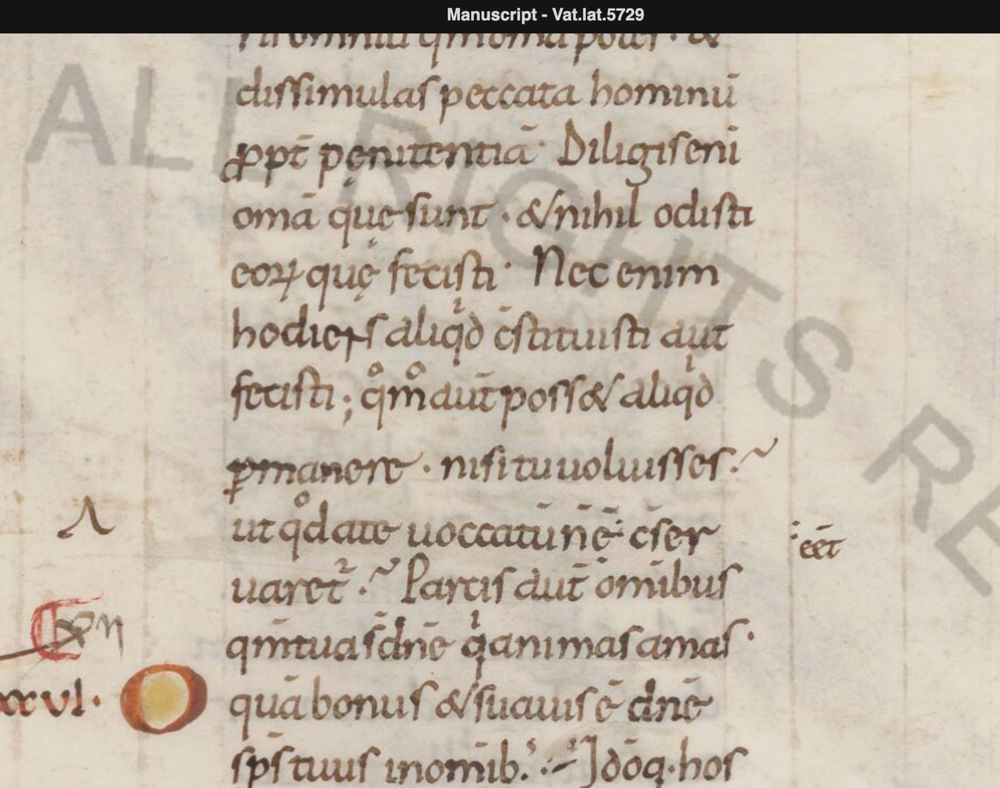 Manuscript - Vat.lat.5729
dissimulas peccata hominū
ꝓpt̄ pęnitentiā· Diligis eni
om̄a quę sunt · & nihil odisti
eoꝝ quę fecisti · Nec enim
aliqͥd c̄stituisti aut
fecisti ; qͦm̊ aut̄ poss& aliqͥd
ꝑmanere · nisi tu uoluisses·
ut qͦd a te uoccatū n̄ ē c̄ser
eēt
uaret᷑ · Parcis aut̄ om̄ibus
qm̄ tua s̄ dn̄e qͥ animas amas·
xxvi·
O quā bonus & suauis ē dn̄e
sp̄s tuus in om̄ib· Ido q· hos
ALL RIGHTS RE